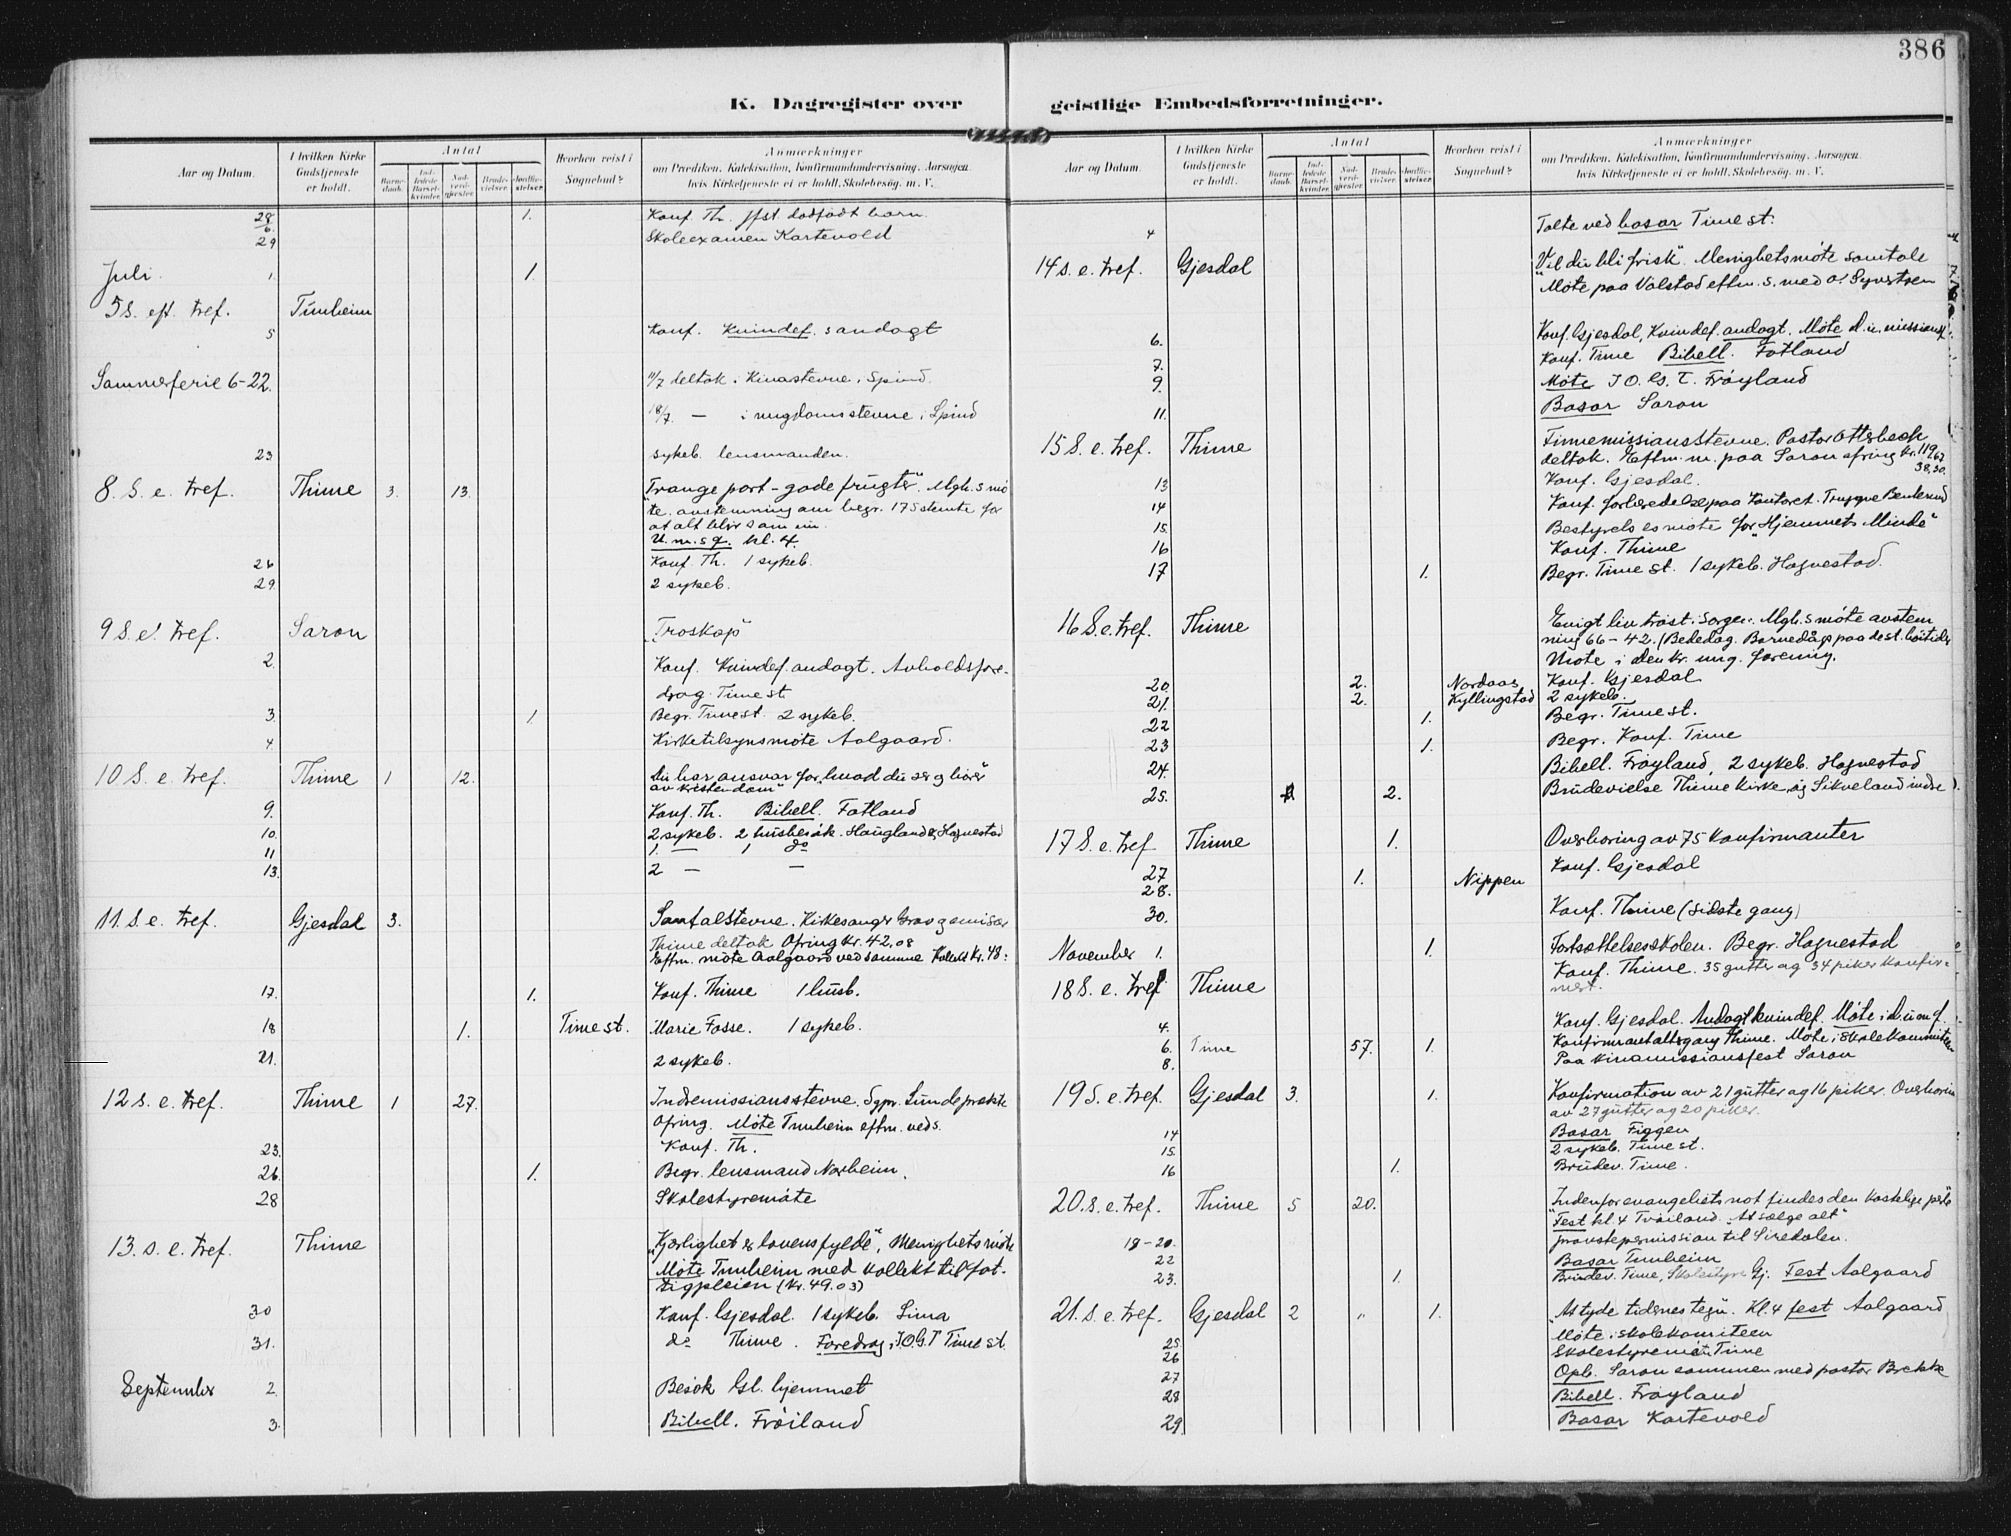 386
K. Dagregister over geistlige Embedsforretninger.
Aar og Datum.
I hvilken Kirke Gudstjeneste er holdt.
Antal
Barnedaab.
Indledede Barselkvinder.
Nadverdgjester.
Brudevielser.
Jordfæstelser.
Hvorhen reist i Sognebud?
Anmærkninger
om Prædiken, Katekisation, Konfirmandundervisning, Aarsagen,
hvis Kirketjeneste ei er holdt, Skolebesøg, m. V.
28/6 1. Konf. Th. Jfst. dødfødt barn.
29 Skoleexamen Kartevold
Juli 1. 1.
5 S. eft. tref. Tunheim
5 Konf. Kvindef. s andagt
Sommerferie 6-22. 11/7 deltok i Kinastevne i Spind.
18/7. — i ungdomsstevne i Spind
23 sykeb. lensmanden.
8. S. e. tref. Thime 3. 13. "Trange port - gode frugter". Mgh. s mø
te. avstemning om begr. 175 stemte for
at alt blir som nu.
U. m. s f. kl. 4.
26 Konf. Th. 1 sykeb.
29. 2 sykeb.
9 S. e. tref. Saron "Troskap"
2. Konf. Kvindef. andagt. Avholdsfore-
drag Time st.
3. 1. Begr. Time st. 2 sykeb.
4. Kirketilsynsmøte Aalgaard.
10 S. e. tref. Thime 1 12. Du har ansvar for hvad du ser og hører
av kristendom"
9. Konf. Th. Bibell. Fotland
10. 2 sykeb. 2 husbesøk. Haugland & Hognestad
11 1. — 1 do
13. 2 — —
11. S. e. tref. Gjesdal 3. Samtalstevne. Kirkesanger
Thime deltok Ofring Kr. 42,08
Eftm. møte Aalgaard ved samme Kollekt Kr. 48:
17. 1. Konf. Thime 1 husb.
18 1. Time st. Marie Fosse. 1 sykeb.
21. 2 sykeb.
12 S. e. tref. Thime 1 27. Indremissionsstevne. Sgpr. Sunde prækte
Ofring. Møte Tunheim eftm. veds.
23. Konf. Th.
26. 1. Begr. lensmand Norheim.
28 Skolestyremøte
13. s. e. tref. Thime "Kjærlighet er lovens fylde". Menighetsmøte
Møte Tunheim med kollekt til fat-
tigpleien (Kr. 49.03)
30 Konf. Gjesdal. 1 sykeb. Lima
31. do Thime. Foredrag i I.O.G.T Time st.
September 2. Besøk Gl. hjemmet
3. Bibell. Frøiland
Aar og Datum.
I hvilken Kirke Gudstjeneste er holdt.
Antal
Barnedaab.
Indledede Barselkvinder.
Nadverdgjester.
Brudevielser.
Jordfæstelser.
Hvorhen reist i Sognebud?
Anmærkninger
om Prædiken, Katekisation, Konfirmandundervisning, Aarsagen,
hvis Kirketjeneste ei er holdt, Skolebesøg, m. V.
4 Talte ved basar Time st.
14 S. e. tref. Gjesdal "Vil du bli frisk". Menighetsmøte samtale
Møte paa Valstad eftm. s. med O.
6. Konf. Gjesdal, Kvindef. andagt. Møte d. u. missionsf
7. Konf. Time Bibell. Fotland
9. Møte I O. G. T. Frøyland
11. Basar Saron
15 S. e. tref. Thime Finnemissionsstevne. Pastor Otterbech
deltok. Eftm. m. paa Saron ofring Kr. 119,67
38,50.
13 Konf. Gjesdal.
14 Konf. forberedelse paa Kontoret.
15. Bestyrelsesmøte for "Hjemmets Minde"
16 Konf. Thime
17 1. Begr. Time st. 1 sykeb. Hognestad.
16 S. e. tref. Thime Evigt liv trøst i sorgen. Mgh. s møte avstem
ning 66 - 42. (Bededag. Barnedåp paa de st. høitider
Møte i den kr. ung. forening.
20. 2. Nordaas Konf. Gjesdal
21. 2. Kyllingstad 2 sykeb.
22 1. Begr. Time st.
23 1. Begr. Konf. Time
24. Bibell. Frøyland, 2 sykeb. Hognestad
25. 2. Brudevielse Thime Kirke og Sikveland indre
17 S. e. tref Thime 1. Overhøring av 75 konfirmanter
27 1. Nippen Konf. Gjesdal
28.
30. Konf. Thime (sidste gang)
November 1. 1. Fortsættelsesskolen. Begr. Hognestad
18 S. e. tref Thime Konf. Thime. 35 gutter og 34 piker konfir-
mert.
4. Konf. Gjesdal. Andagt kvindef. Møte i d. u m f.
6. Time 57. 1. Konfirmantaltergang Thime. Møte i Skolekommiteen
8. Paa Kinamissionsfest Saron
19 S. e. tref. Gjesdal 3. 1. Konfirmation av 21 gutter og 16 piker. Overhøring
av 27 gutter og 20 piker.
14 Basar Figgen
15. 2 sykeb. Time st.
16 1. Brudev. Time.
20. S. e. tref. Thime 5 20. "Indenfor evangeliets not findes den kostelige perle
Fest kl. 4 Frøiland. "At sælge alt"
18-20. provstepermission til Siredalen.
22 Basar Tunheim
23. 1. Brudev. Time, Skolestyre Gj. Fest Aalgaard
21. S. e. tref. Gjesdal 2 " 1. "At tyde tidenes tegn. Kl. 4 fest Aalgaard
25 Møte i skolekomiteen
26 Skolestyremøte Time
27 Opb. Saron sammen med pastor Brekke
28 Bibell. Frøyland
29. Basar Kartevold